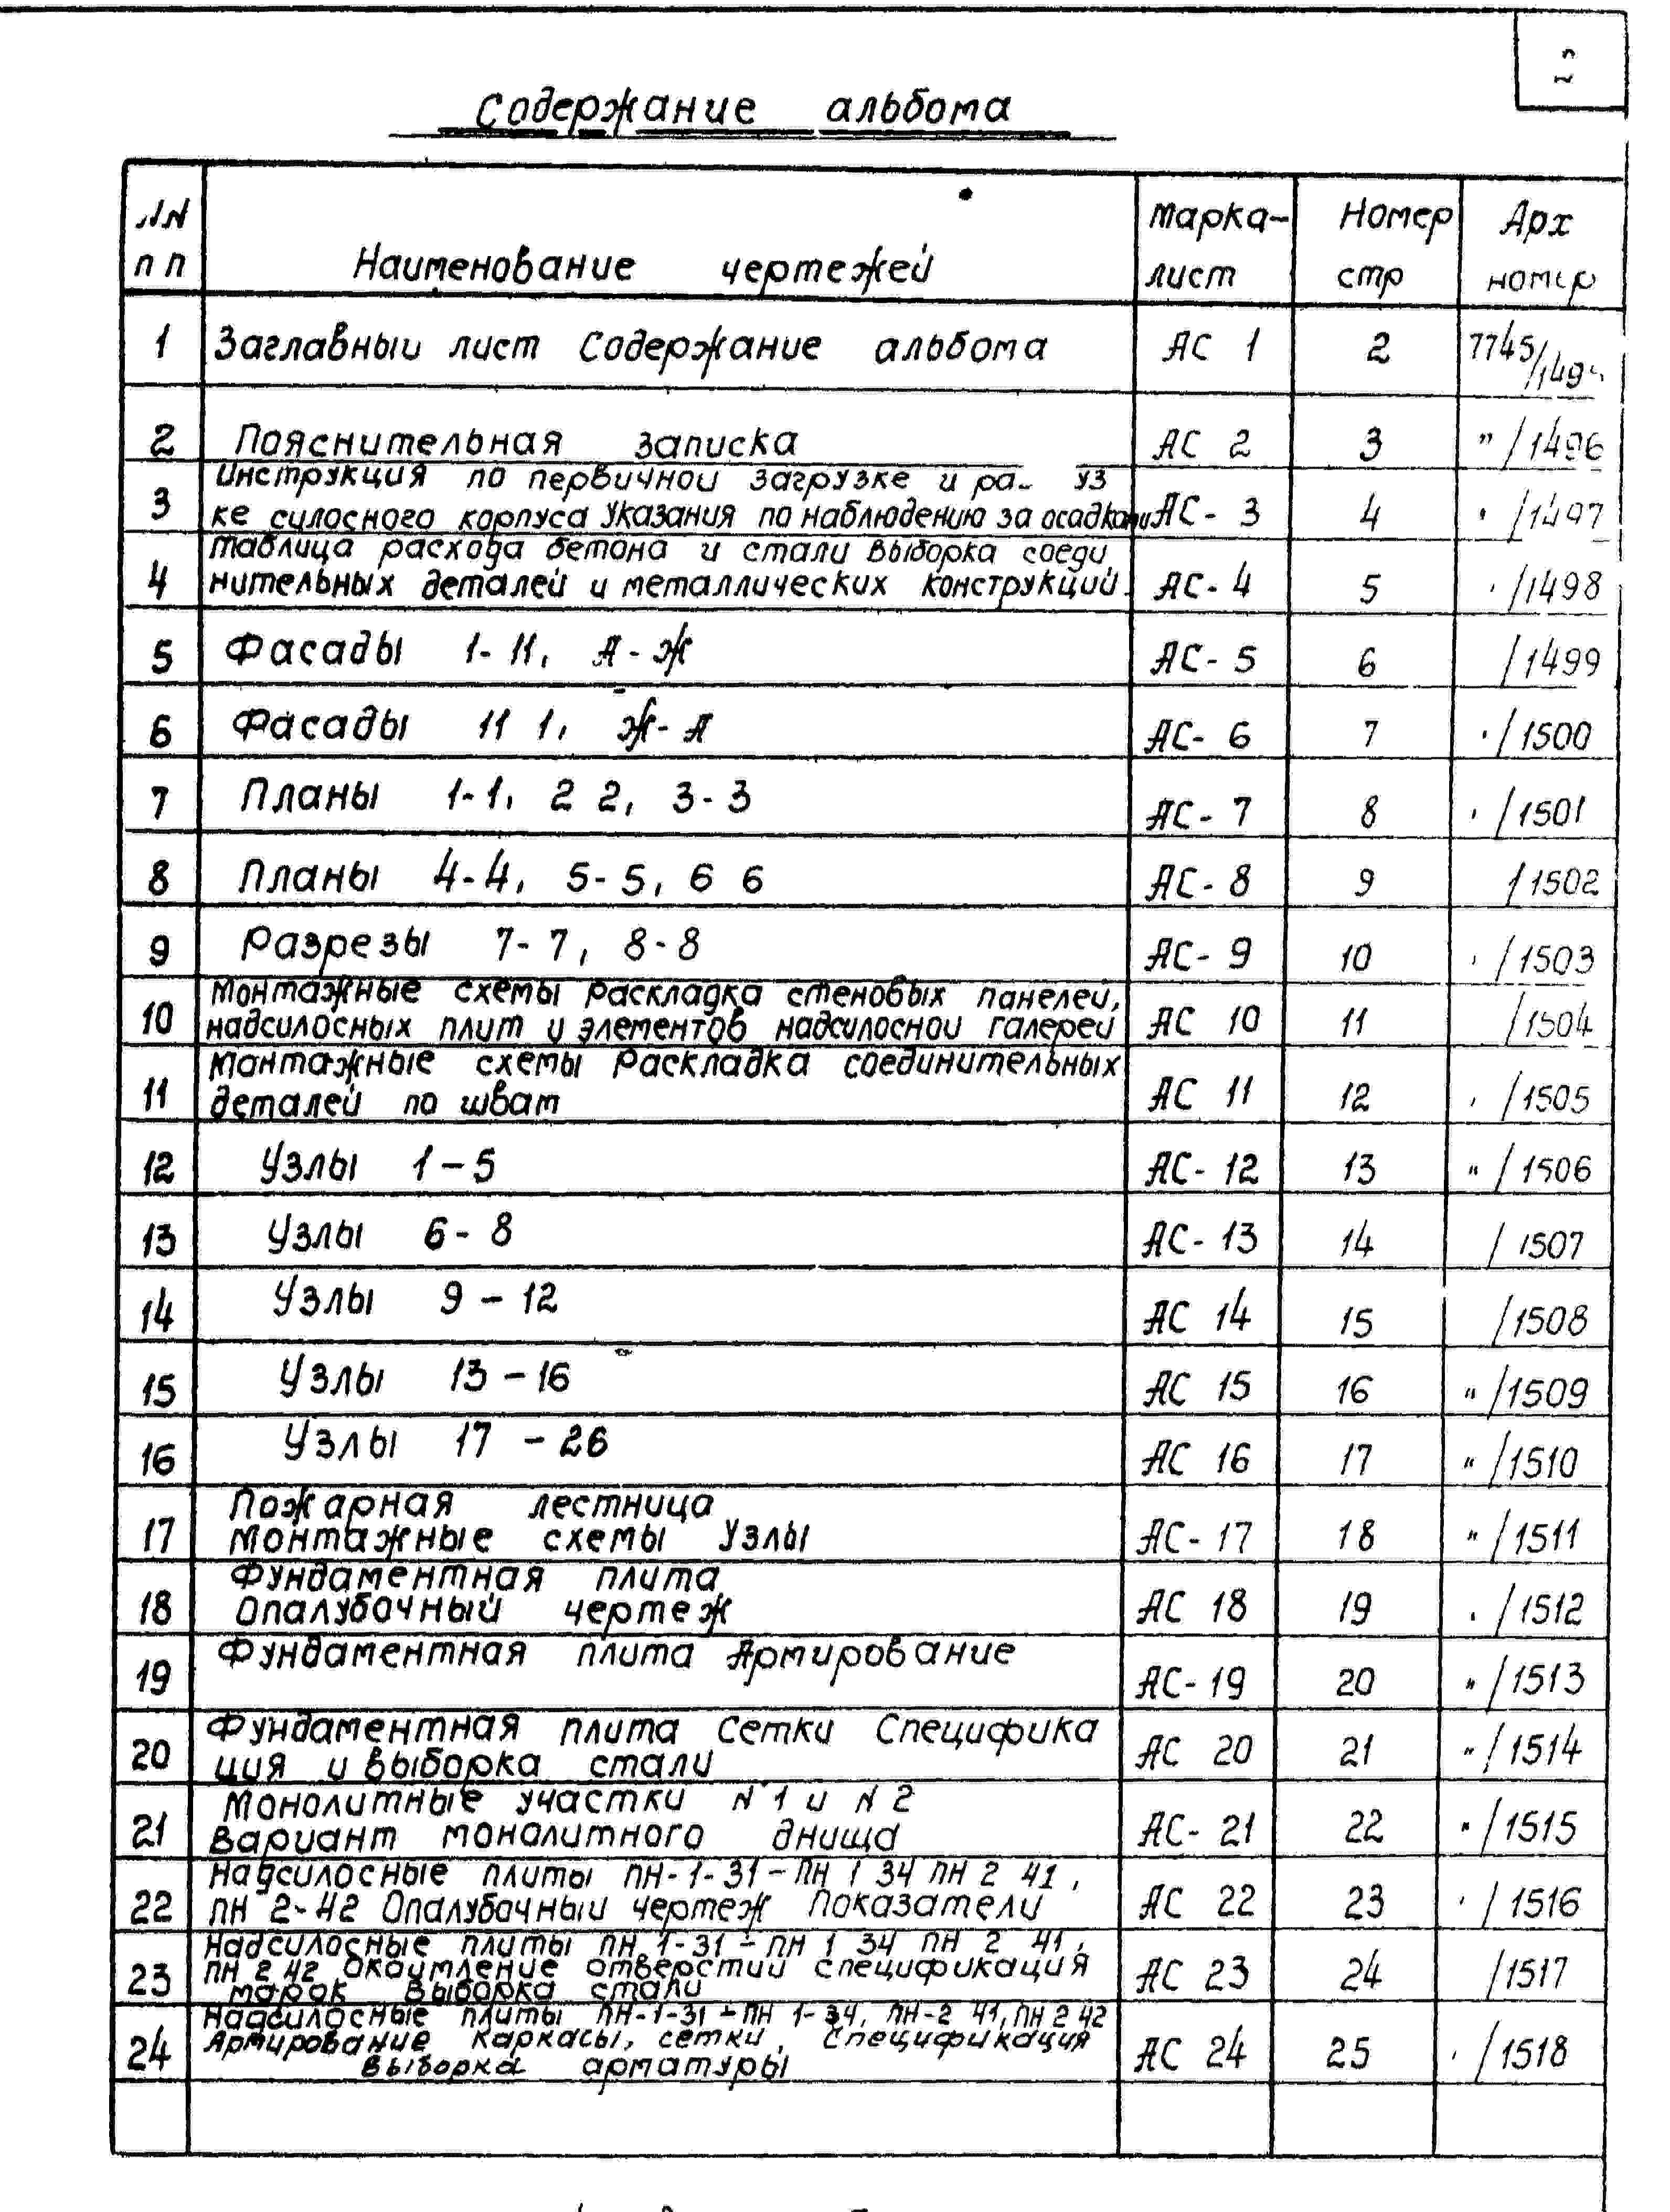 2
Содержание альбома
NN пп Наименование чертежей Марка-лист Номер стр Арх номер
1 Заглавный лист Содержание альбома АС 1 2 7745/149
2 Пояснительная записка АС 2 3 " /1496
3 Инструкция по первичной загрузке и ра уз
ке силосного корпуса Указания по наблюдению за осадками АС-3 4 " /1497
4 Таблица расхода бетона и стали Выборка соеди
нительных деталей и металлических конструкций. АС-4 5 /1498
5 Фасады 1-11, А-Ж АС-5 6 /1499
6 Фасады 11 1, Ж-А АС-6 7 /1500
7 Планы 1-1, 2 2, 3-3 АС-7 8 /1501
8 Планы 4-4, 5-5, 6 6 АС-8 9 /1502
9 Разрезы 7-7, 8-8 АС-9 10 /1503
10 Монтажные схемы Раскладка стеновых панелей,
надсилосных плит и элементов надсилосной галереи АС 10 11 /1504
11 Монтажные схемы Раскладка соединительных
деталей по швам АС 11 12 /1505
12 Узлы 1-5 АС-12 13 " /1506
13 Узлы 6-8 АС-13 14 /1507
14 Узлы 9-12 АС 14 15 /1508
15 Узлы 13-16 АС 15 16 " /1509
16 Узлы 17-26 АС 16 17 " /1510
17 Пожарная лестница
Монтажные схемы Узлы АС-17 18 " /1511
18 Фундаментная плита
Опалубочный чертеж АС 18 19 /1512
19 Фундаментная плита Армирование АС-19 20 " /1513
20 Фундаментная плита Сетки Специфика
ция и выборка стали АС 20 21 " /1514
21 Монолитные участки N1 и N2
Вариант монолитного днища АС-21 22 " /1515
22 Надсилосные плиты ПН-1-31-ПН 1 34 ПН 2 41,
ПН 2-42 Опалубочный чертеж Показатели АС 22 23 /1516
23 Надсилосные плиты ПН 1-31-ПН 1 34 ПН 2 41,
ПН 2 42 Окаймление отверстий спецификация
марок Выборка стали АС 23 24 /1517
24 Надсилосные плиты ПН-1-31-ПН 1-34, ПН-2 41, ПН 2 42
Армирование каркасы, сетки, спецификация
выборка арматуры АС 24 25 /1518